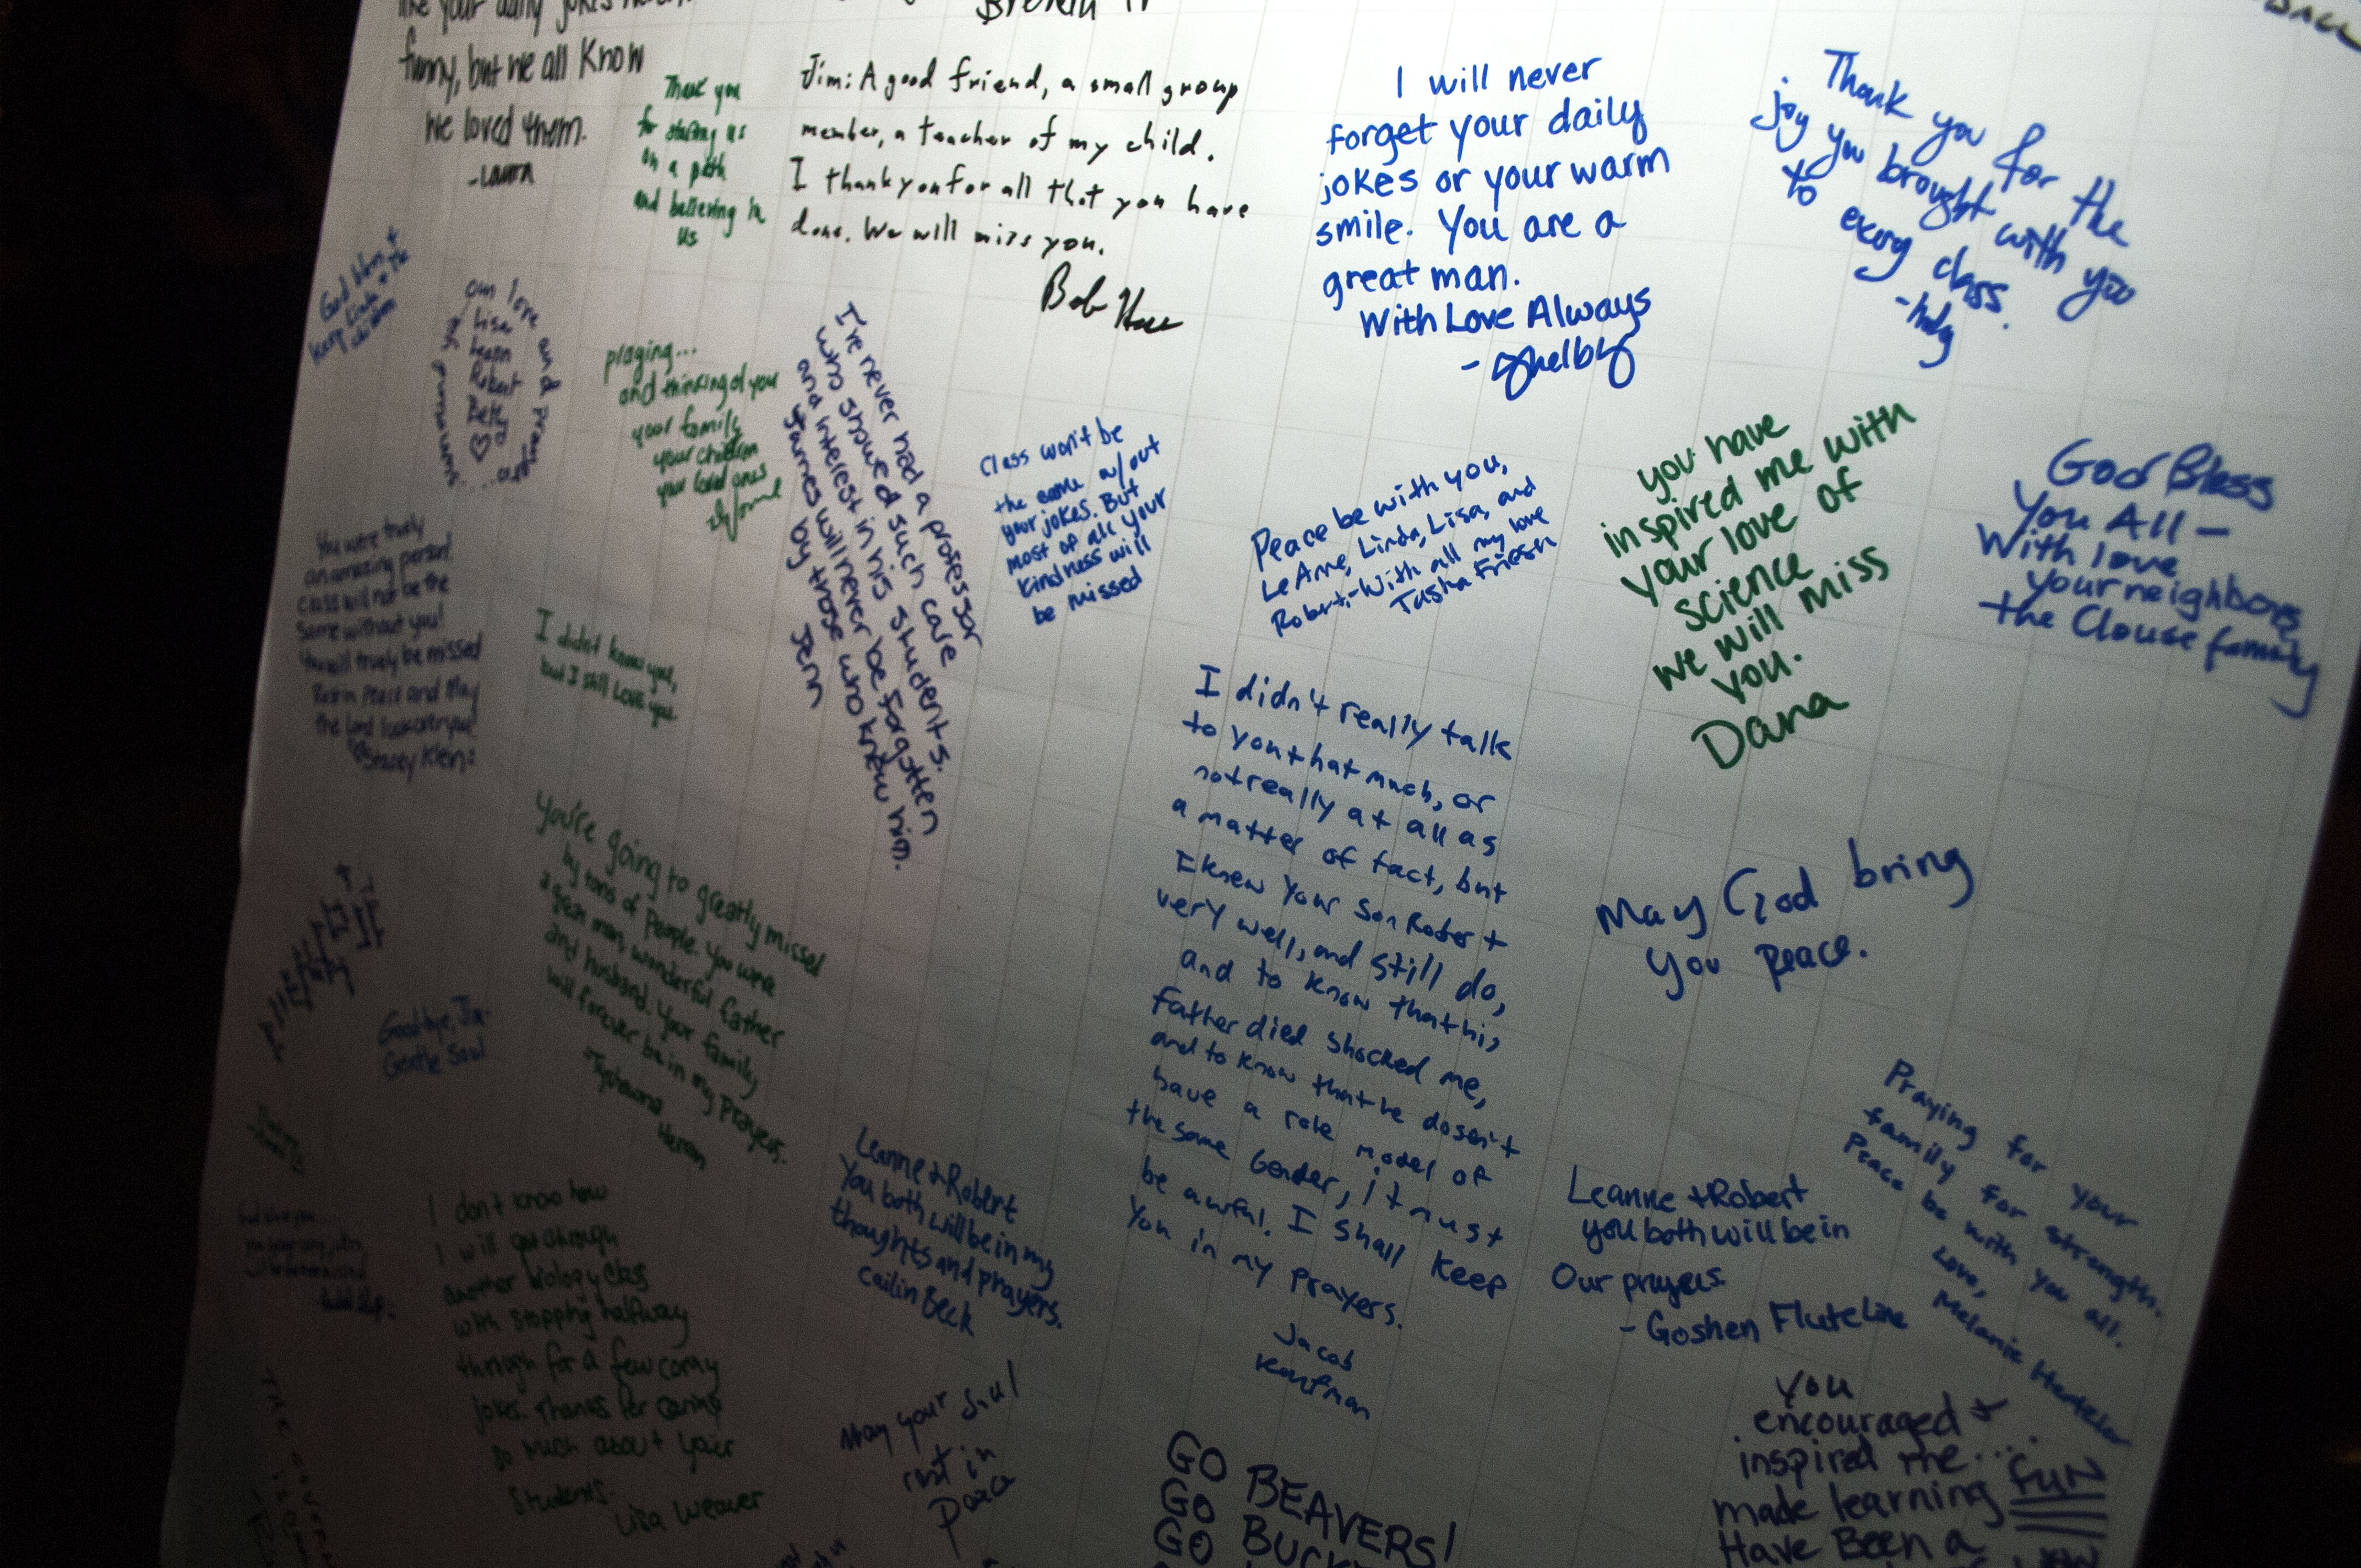 like your daily jokes
funny, but we all know
we loved them.
-Laura
Thank you
for starting us
on a path
and believing in
us
Jim: A good friend, a small group
member, a teacher of my child.
I thank you for all that you have
done. We will miss you.
Bob
I will never
forget your daily
jokes or your warm
smile. You are a
great man.
With Love Always
- Shelby
Thank you for the
joy you brought with you
to every class.
God bless +
keep Linda + the
children
our love and prayers
surround you
Lisa
Leann
Robert
Pete
praying...
and thinking of you
your family
your children
your loved ones
I've never had a professor
who showed such care
and interest in his students.
James will never be forgotten
by those who knew him.
Jenn
Class won't be
the same w/out
your jokes. But
most of all your
kindness will
be missed
Peace be with you,
LeAnne, Linda, Lisa, and
Robert.-With all my love
Tasha Friesen
you have
inspired me with
your love of
science
we will miss
you.
Dana
God Bless
You All -
With love
your neighbors
the Clouse family
You were truly
an amazing person!
Class will not be the
Same without you!
You will truely be missed
Rest in Peace and May
the Lord look over you!
Stacey Klein
I didn't know you,
but I still Love you.
I didn't really talk
to you that much, or
not really at all as
a matter of fact, but
I knew your son Robert
very well, and still do,
and to know that his
Father died shocked me,
and to know that he doesn't
have a role model of
the same Gender, it must
be awful. I shall keep
you in my prayers.
Jacob
Kaufman
You're going to greatly missed
by tons of people. You were
a great man, wonderful father
and husband. Your family
will forever be in my prayers.
May God bring
you peace.
Goodbye, Jim-
Gentle Soul
Leanne + Robert
You both will be in my
thoughts and prayers.
Cailin Beck
Leanne + Robert
you both will be in
Our prayers.
- Goshen Flute Line
Praying for your
family for strength.
Peace be with you all.
Love,
Melanie Hertzler
I don't know how
I will go through
another biology class
with stopping halfway
through for a few corny
jokes. Thanks for caring
so much about your
students.
Lisa Weaver
May your soul
rest in
Peace
GO BEAVERS!
GO
GO
you
encouraged +
inspired me...
made learning FUN
Have Been a